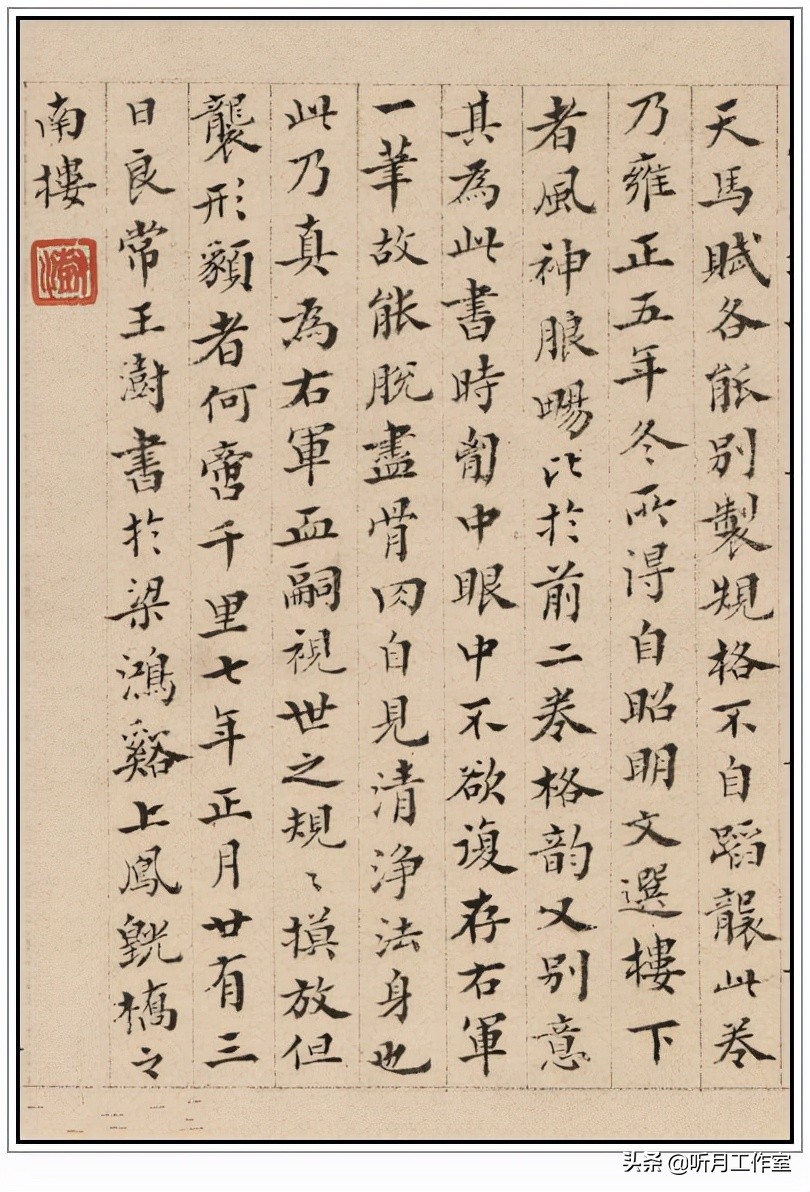 天馬賦各能別製規格不自蹈襲此卷
乃雍正五年冬所得自昭明文選樓下
者風神朖暢比於前二卷格韵又別意
其為此書時胷中眼中不欲復存右軍
一筆故能脫盡骨肉自見清淨法身也
此乃真為右軍血嗣視世之規〻摸放但
襲形顙者何啻千里七年正月廿有三
日良常王澍書於梁鴻谿上鳳皝橋之
南樓
头条 @听月工作室